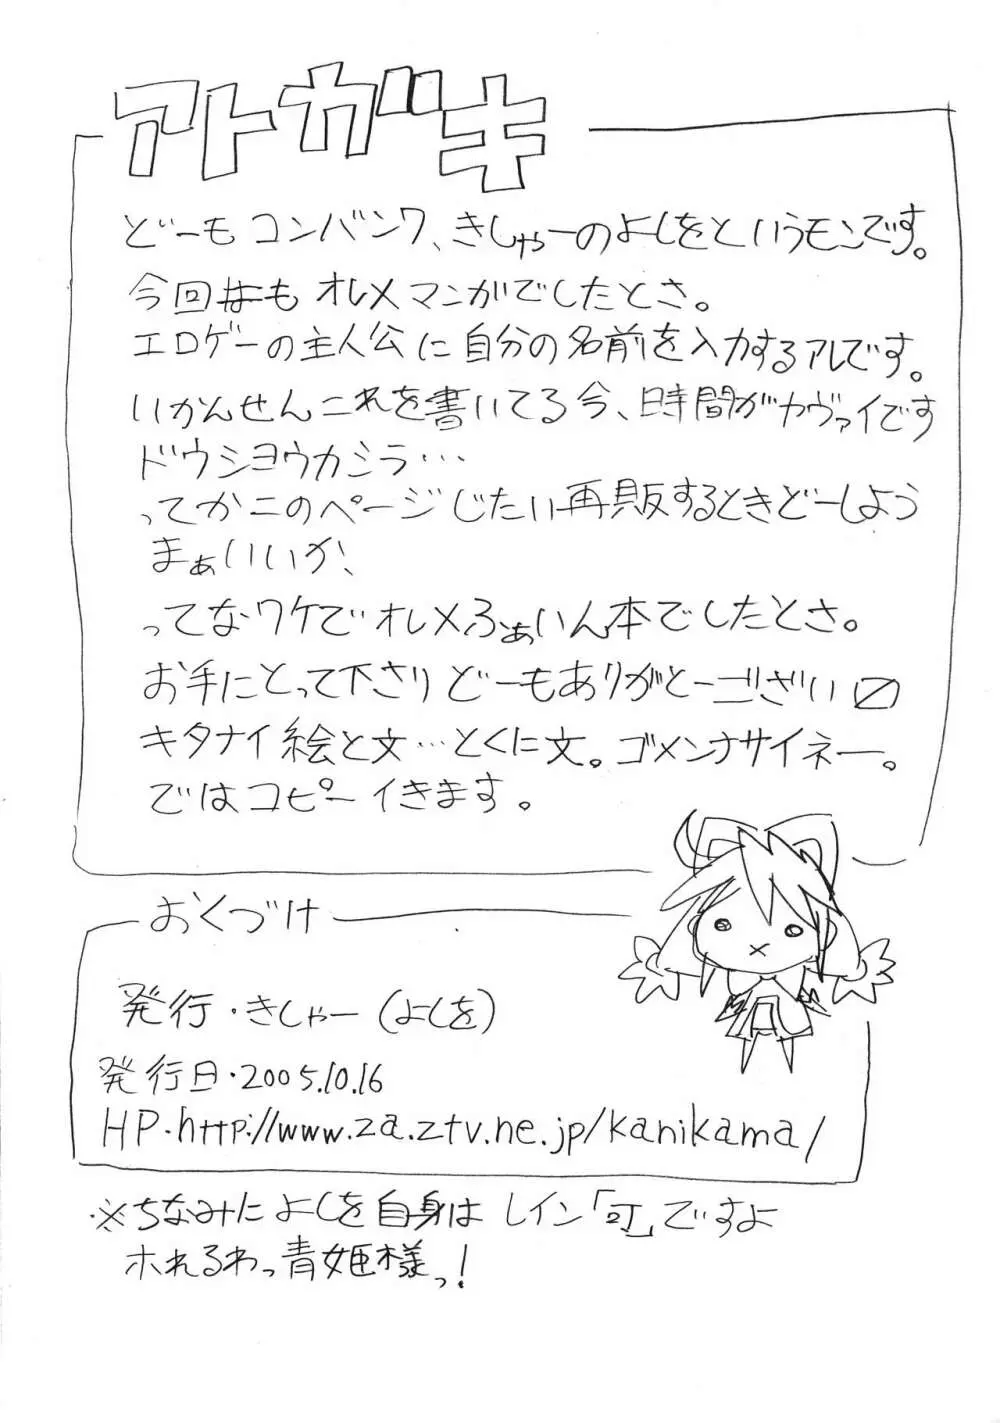 アトガキ
どーもコンバンワ、きしゃーのよしをというモンです。
今回もオレメマンガでしたとさ。
エロゲーの主人公に自分の名前を入力するアレです。
いかんせんこれを書いてる今、時間がヤヴァイです
ドウシヨウカシラ…
ってかこのページじたい再販するときどーしよう
まぁいいか、
ってなワケでオレメふぁいん本でしたとさ。
お手にとって下さりどーもありがとーござい〼
キタナイ絵と文…とくに文。ゴメンナサイネー。
ではコピーイきます。
おくづけ
発行・きしゃー(よしを)
発行日・2005.10.16
HP・http://www.za.ztv.ne.jp/kanikama/
※ちなみに よしを自身は レイン「」ですよ
ホれるわっ青姫様っ!